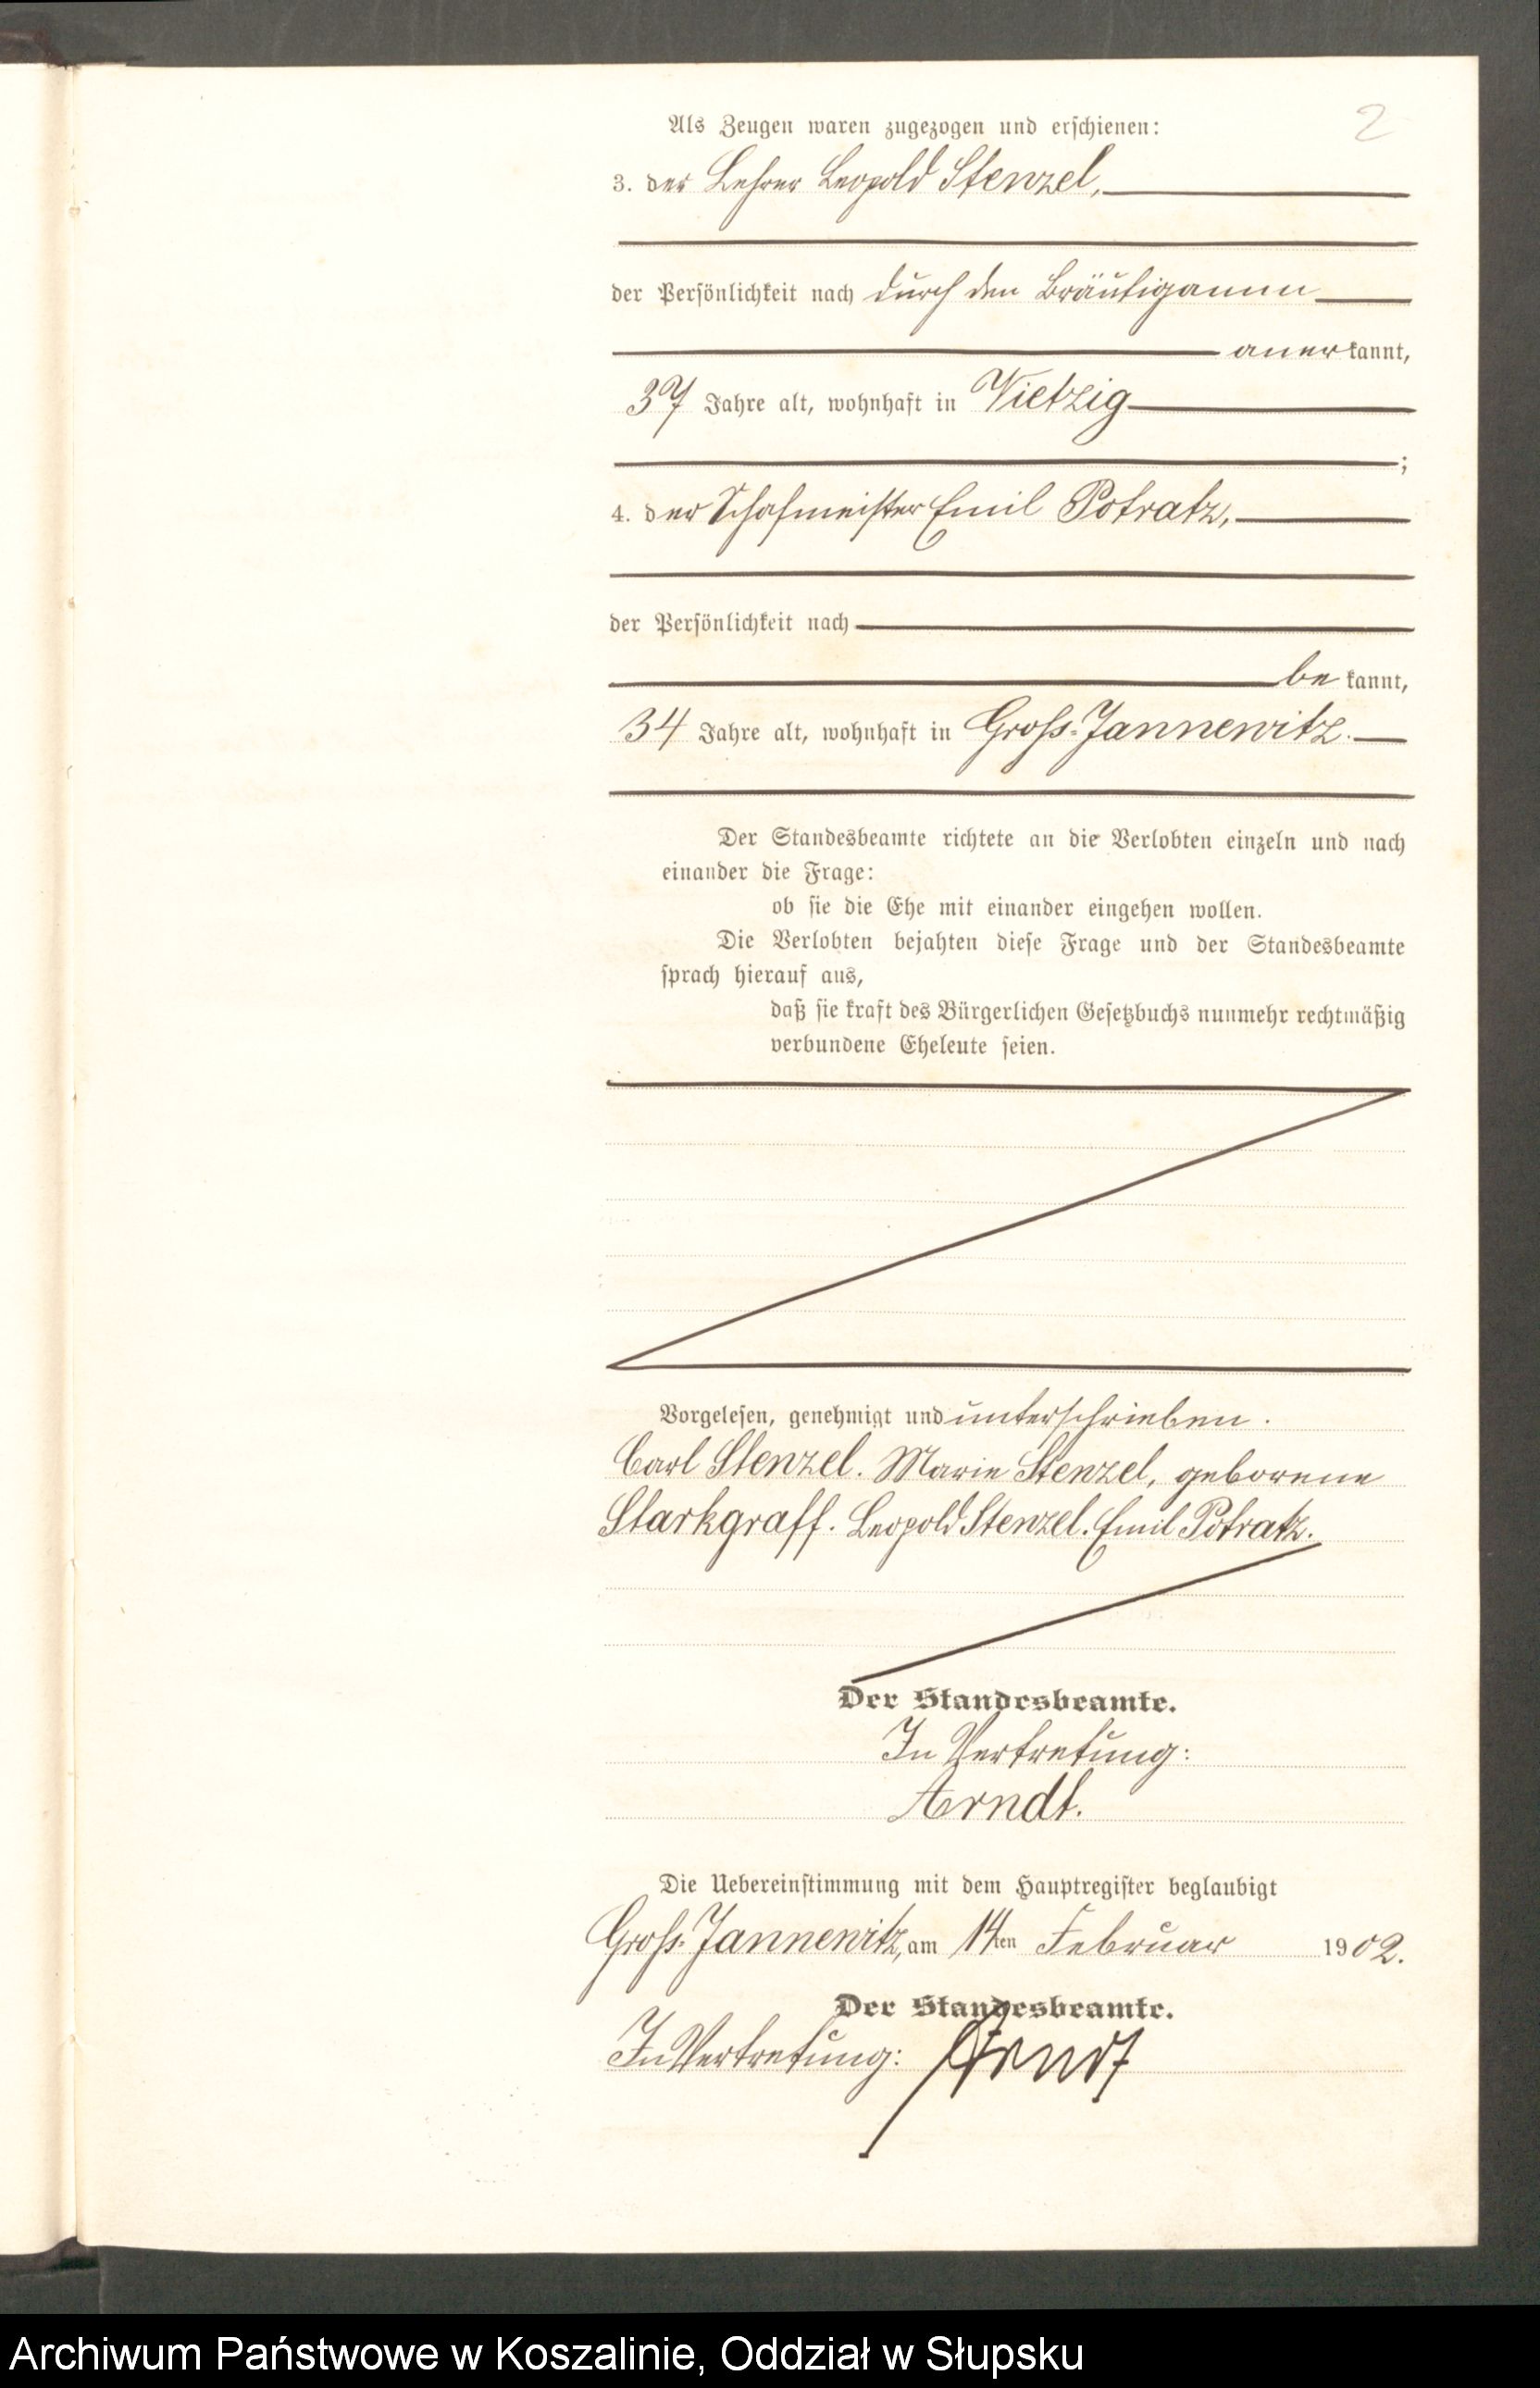 2
Als Zeugen waren zugezogen und erschienen:
3. der Lehrer Leopold Stenzel,
der Persönlichkeit nach durch den Bräutigamm
anerkannt,
37 Jahre alt, wohnhaft in Vietzig
;
4. der Schafmeister Emil Potratz,
der Persönlichkeit nach
bekannt,
34 Jahre alt, wohnhaft in Groß-Jannewitz.
Der Standesbeamte richtete an die Verlobten einzeln und nach
einander die Frage:
ob sie die Ehe mit einander eingehen wollen.
Die Verlobten bejahten diese Frage und der Standesbeamte
sprach hierauf aus,
daß sie kraft des Bürgerlichen Gesetzbuchs nunmehr rechtmäßig
verbundene Eheleute seien.
Vorgelesen, genehmigt und unterschrieben.
Carl Stenzel. Marie Stenzel, geborene
Starkgraff. Leopold Stenzel. Emil Potratz.
Der Standesbeamte.
In Vertretung:
Arndt.
Die Uebereinstimmung mit dem Hauptregister beglaubigt
Groß-Jannewitz, am 14ten Februar 1902.
Der Standesbeamte.
In Vertretung: Arndt
Archiwum Państwowe w Koszalinie, Oddział w Słupsku